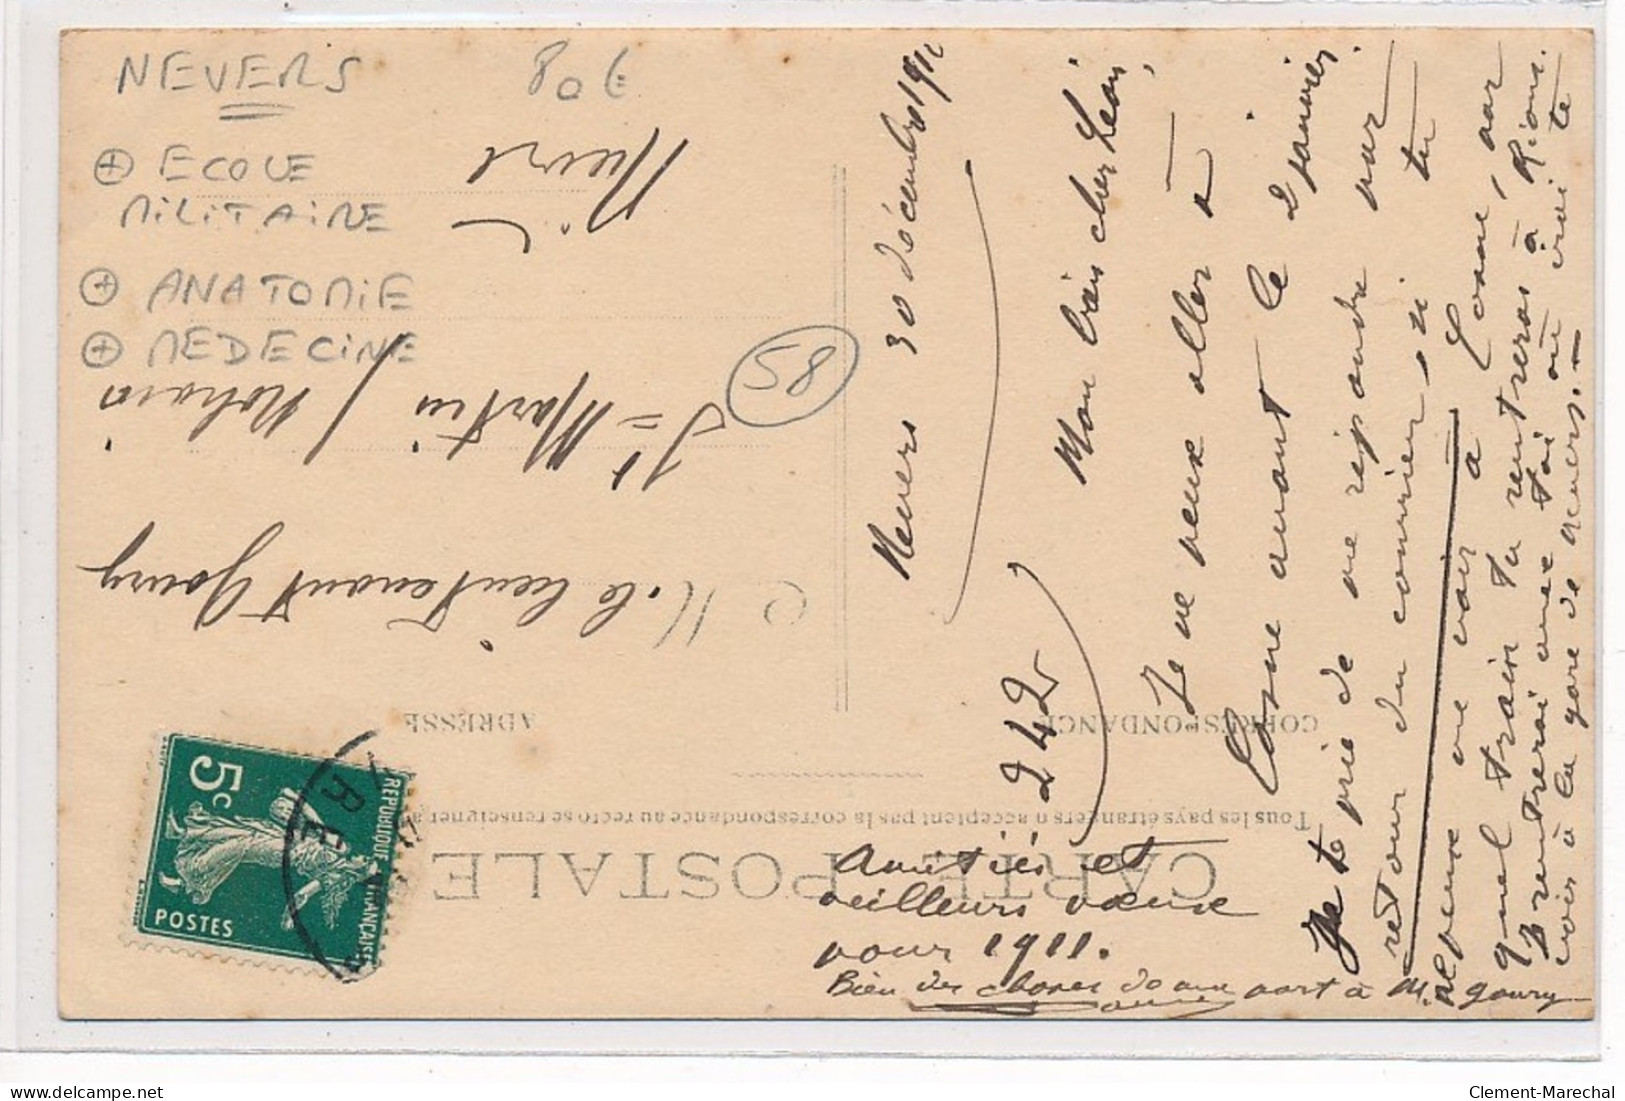 NEVERS
80€
⊕ ECOLE
MILITAIRE
⊕ ANATOMIE
⊕ MEDECINE
85
CARTE POSTALE
Tous les pays étrangers n'acceptent pas la correspondance au recto se renseigner
CORRESPONDANCE
ADRESSE
REPUBLIQUE FRANÇAISE
5c
POSTES
RE
M. le lieutenant Goury
St Martin
Nièvre
Nevers 30 décembre 191
242
Mon très cher Léon,
Je ne peux aller à
Cosne avant le 2 janvier.
Je te prie de me répondre par
retour du courrier, si tu
peux me voir à Cosne, par
quel train tu rentreras à Riom.
Je rentrerai avec toi ou irai te
voir à la gare de Nevers.-
Amitiés et
meilleurs vœux
pour 1911.
Bien des choses de ma part à M. Goury
Clement-Marechal